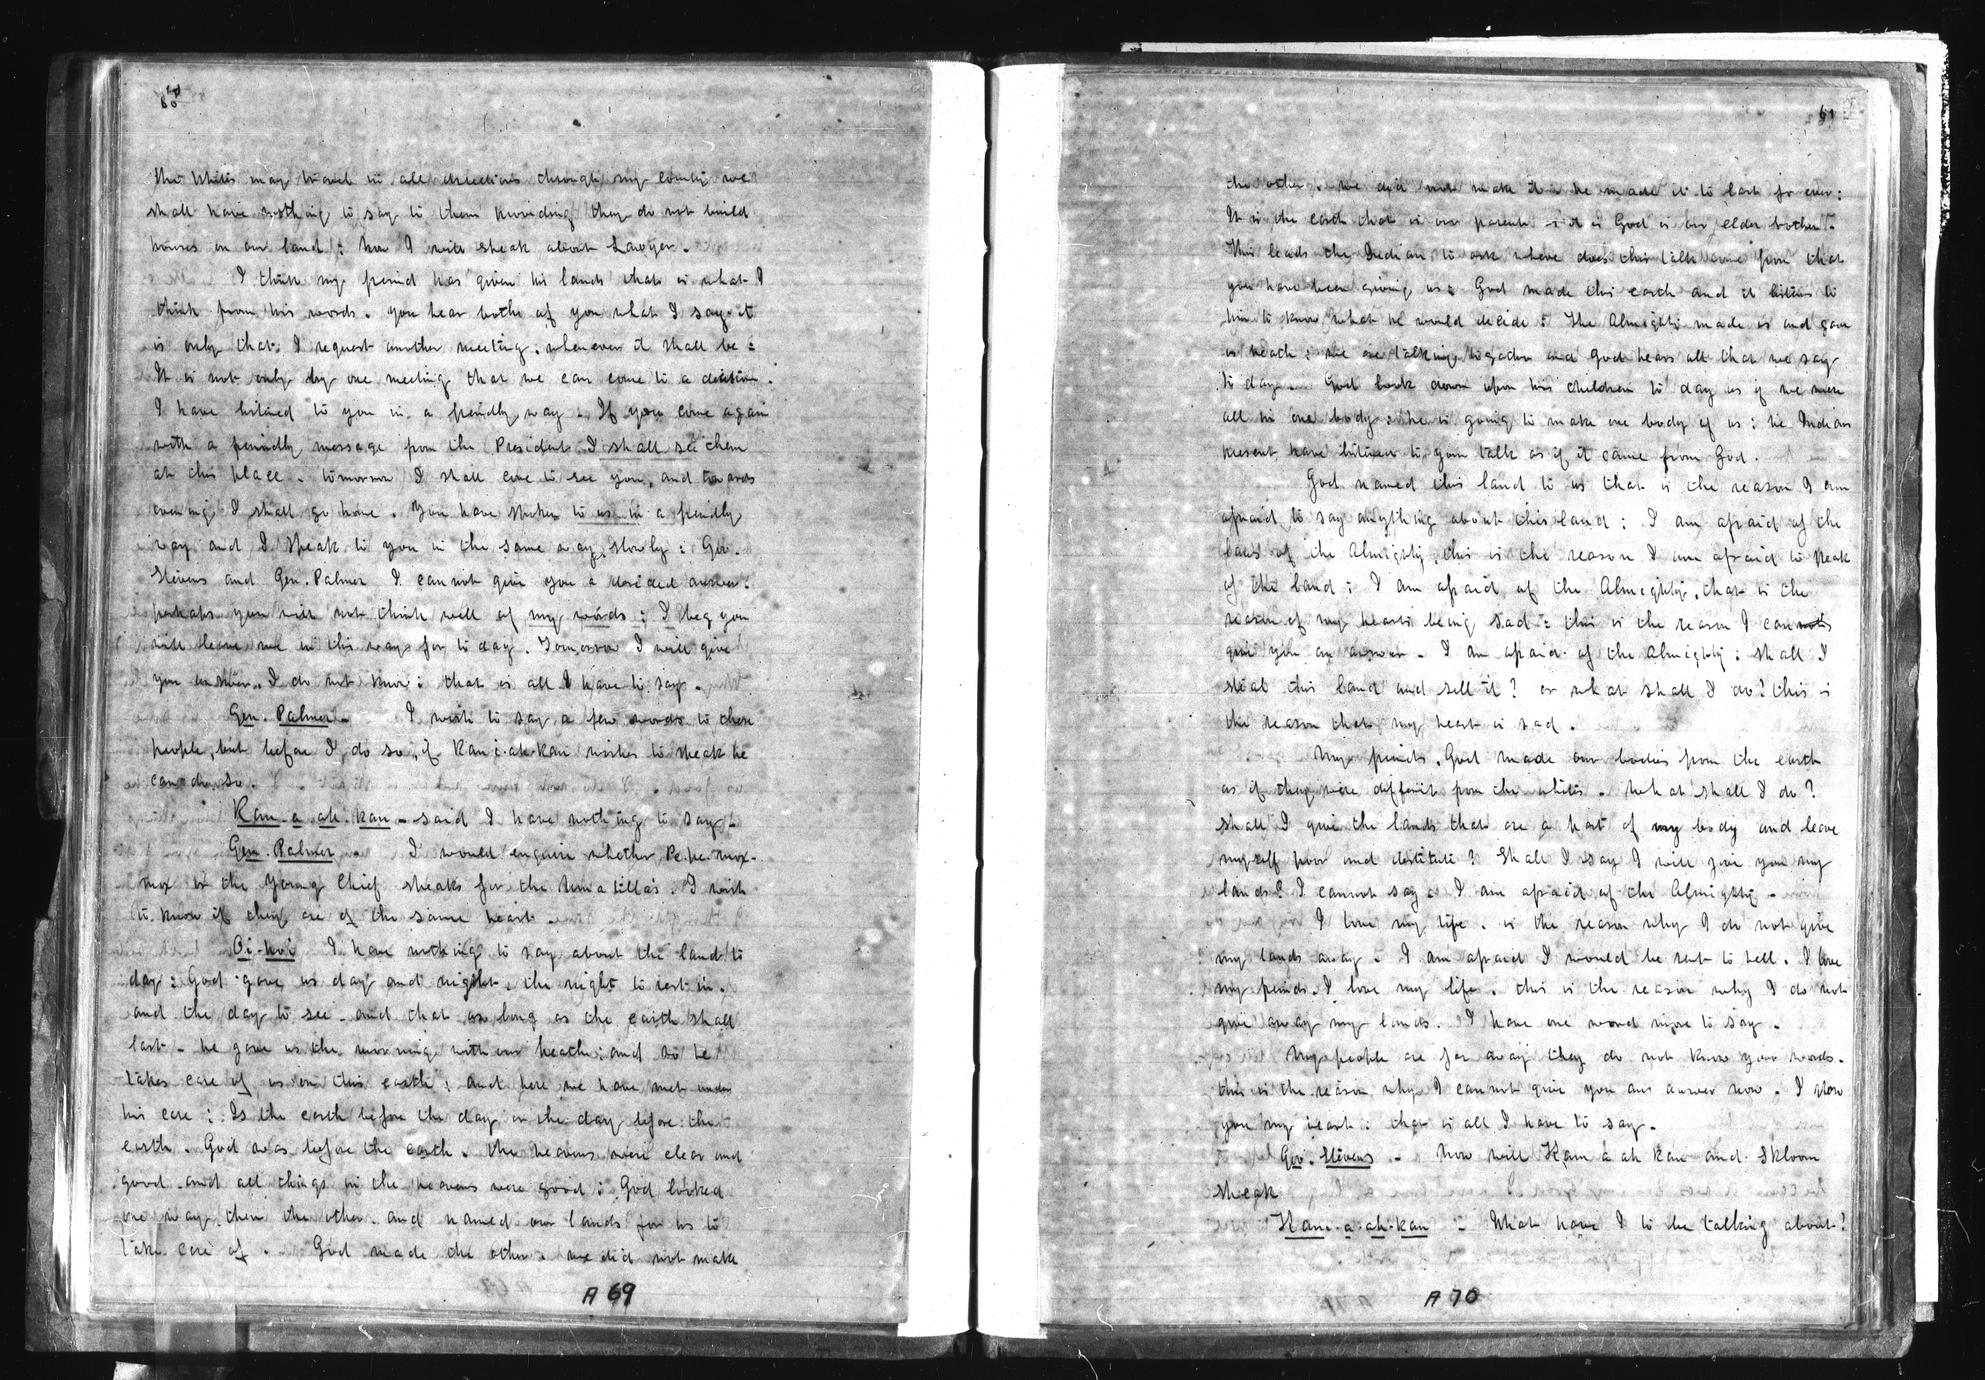 60
the whites may travel in all directions through my country we
shall have nothing to say to them providing they do not build
houses on our land : Now I will speak about Lawyer.
I think my friend has given his lands that is what I
think from his words. you hear bothe of you what I say. it
is only that, I request another meeting, whenever it shall be :
It is not only by one meeting that we can come to a decision.
I have listned to you in a friendly way. If you come again
with a friendly message from the President I shall see them
at this place. tomorrow I shall come to see you, and towards
evening I shall go home. You have spoken to us in a friendly
way and I speak to you in the same way, slowly : Gov.
Stevens and Gen. Palmer I can not give you a decided answer.
perhaps you will not think well of my words : I beg you
will leave me in this way for to day. Tomorrow I will give
you answer. I do not know : that is all I have to say.
Gen. Palmer - I wish to say a few words to these
people, but before I do so, if Kam-i-ah-kan wishes to speak he
can do so.
Kam-a-ah-kan - said I have nothing to say -
Gen. Palmer I would enquire whether Pe-pe-mox-
mox or the Young Chief speaks for the Umatillas. I wish
to know if they are of the same heart -
Oi-hoi I have nothing to say about the land to
day : God gave us day and night, the night to rest in.
and the day to see. and that as long as the earth shall
last - he gave us the morning with our heath : and so he
takes care of us on this earth : and here we have met under
his care : Is the earth before the day or the day before the
earth. God was before the earth. the heavens were clear and
good and all things in the heavens were good : God looked
one way then the other. and named our lands for us to
take care of. God made the other. we did not make
A 69
61
the other. we did not make it - he made it to last for ever :
It is the earth that is our parent - it is God is our elder brother.
This leads the Indian to ask where does this talk come from that
you have been giving us : God made this earth and it listens to
him to know what he would decide : The Almighty made us and gave
us breath : we are talking togather and God hears all that we say
to day. God look down upon his children to day as if we were
all in one body : he is going to make one body of us : he Indians
present, have listened to your talk as if it came from God.
God named this land to us that is the reason I am
afraid to say anything about this land : I am afraid of the
laws of the Almighty, this is the reason I am afraid to speak
of the land : I am afraid of the Almighty, that is the
reason of my hearts being sad : this is the reason I cannot
give you an answer. I am afraid of the Almighty : shall I
steal this land and sell it? or what shall I do? this is
the reason that my heart is sad.
My friends, God made our bodies from the earth
as if they were different from the whites. What shall I do?
shall I give the lands that are a part of my body and leave
myself poor and destitute? Shall I say I will give you my
lands? I cannot say. I am afraid of the Almighty.
I love my life. is the reason why I do not give
my lands away. I am afraid I would be sent to hell. I love
my friends. I love my life. this is the reason why I do not
give away my lands. I have one word more to say.
My people are far away they do not know your words.
this is the reason why I cannot give you an answer now. I show
you my heart : that is all I have to say.
Gov. Stevens - Now will Kam-a-ah-kan and Skloom
speak
Kam-a-ah-kan - What have I to be talking about?
A 70